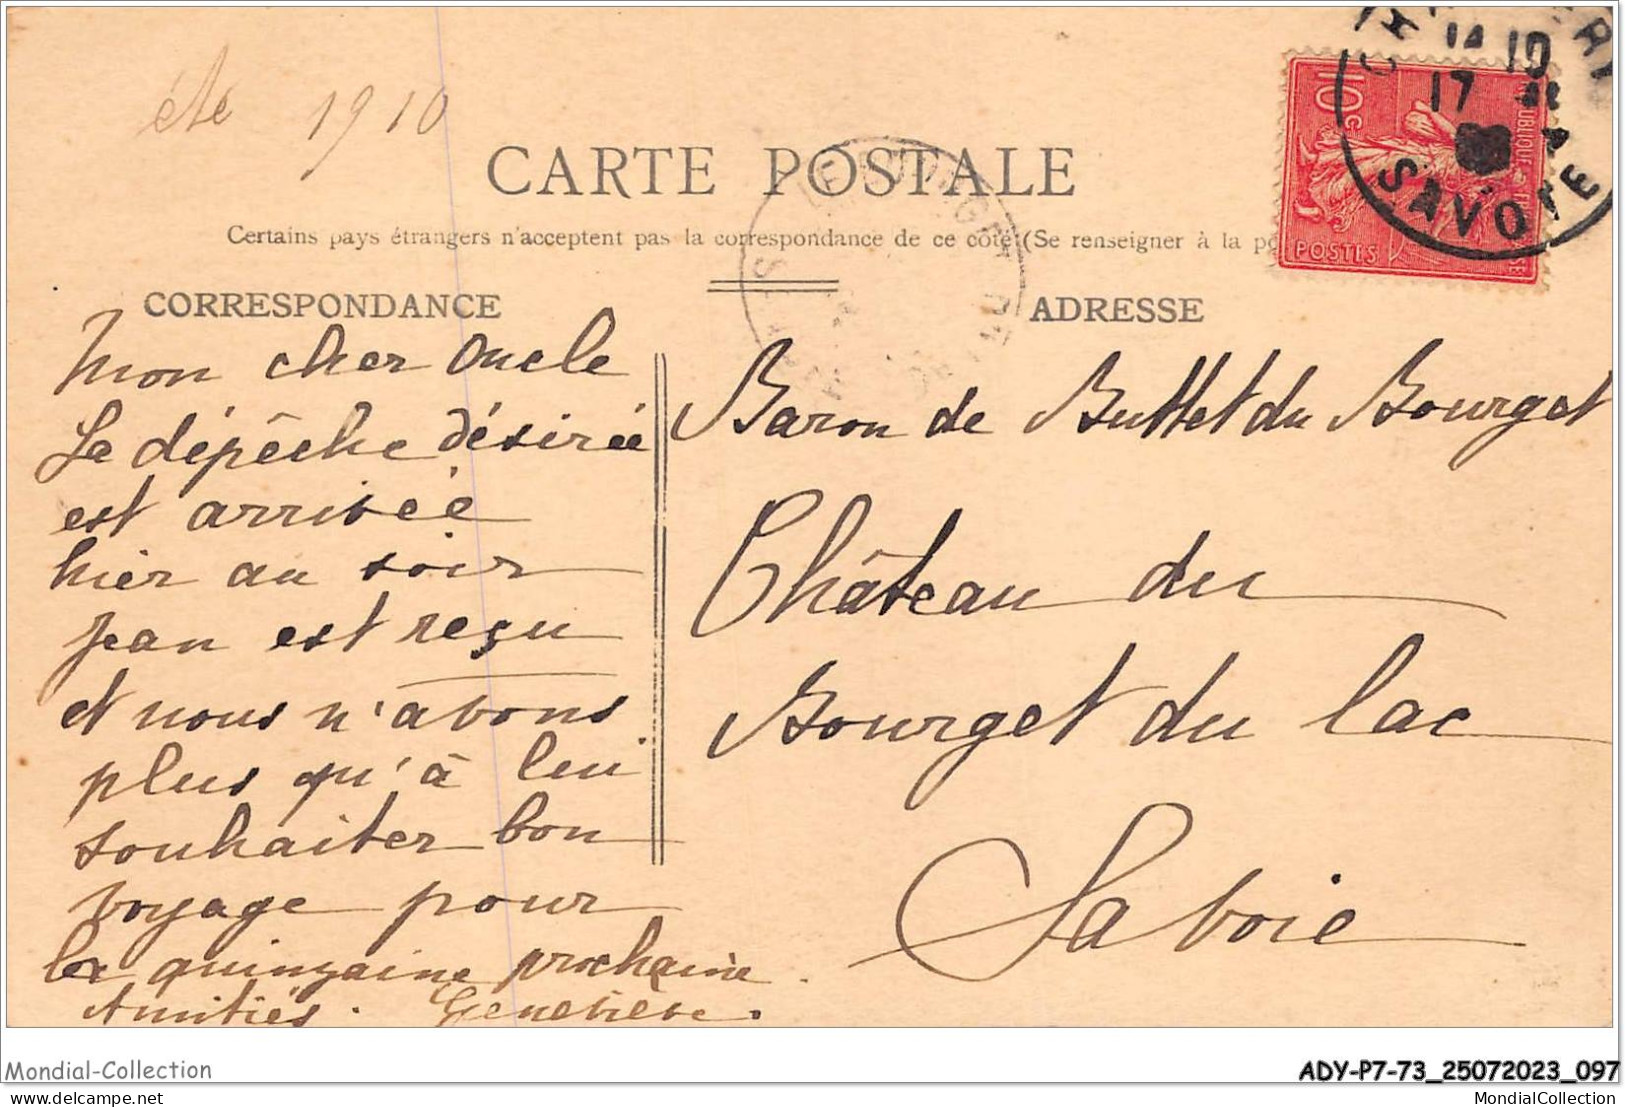 été 1910
CARTE POSTALE
Certains pays étrangers n'acceptent pas la correspondance de ce côté (Se renseigner à la
CORRESPONDANCE
Mon cher Oncle
La dépêche désirée
est arrivée
hier au soir
Jean est reçu
et nous n'avons
plus qu'à lui
souhaiter bon
voyage pour
la quinzaine prochaine.
Amitiés. Geneviève.
ADRESSE
Baron de Buttet du Bourget
Château du
Bourget du lac
Savoie
10c
POSTES
14 10
17
SAVOIE
Mondial-Collection
ADY-P7-73_25072023_097
delcampe.net
MondialCollection